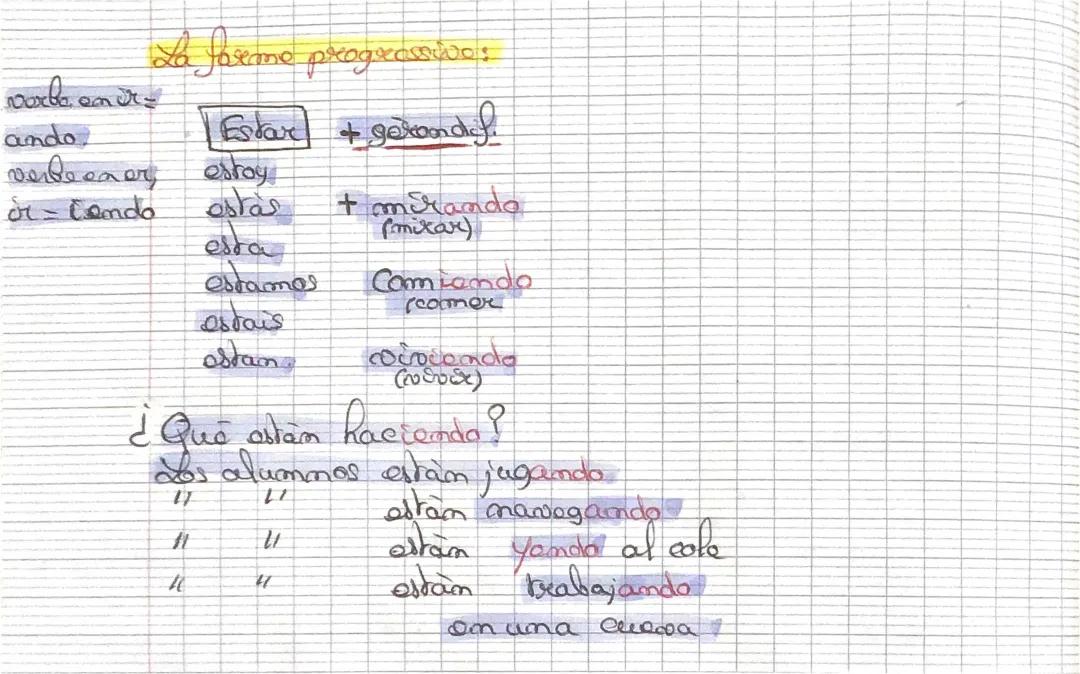 La forme progressive:
verbe en ir =
ando.
verbe en er,
ir = iendo
Estar + gérondif.
estoy
estàs + mirando
(mirar)
esta
estamos Comiendo
(comer
estais
estan. viviendo
(vivir)
¿Qué estàn haciendo?
Los alumnos estàn jugando
" " estàn navegando
" " estàn yendo al cole
" " estàn trabajando
en una cueva